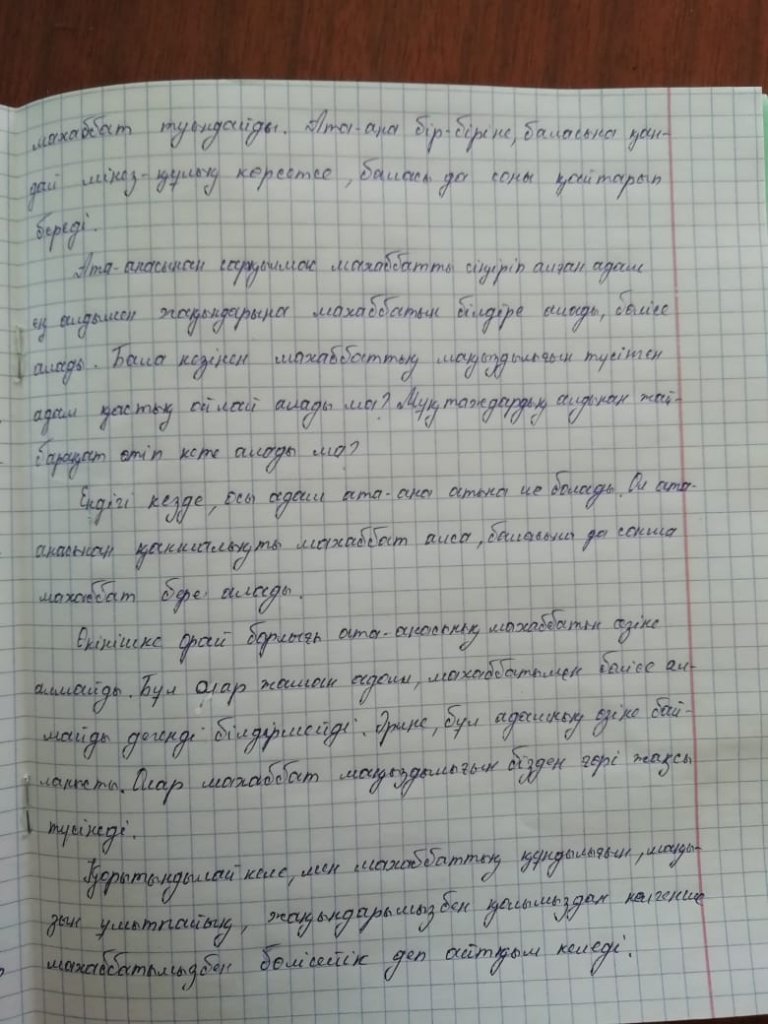 махаббат туындайды. Ата-ана бір-біріне, баласына қан-
дай мінез-құлық көрсетсе, баласы да соны қайтарып
береді.
Ата-анасынан сарқылмас махаббатты сіңіріп алған адам
ең алдымен жақындарына махаббатын білдіре алады, бөлісе
алады. Бала кезінен махаббаттың маңыздылығын түсінген
адам қастық ойлай алады ма? Мұқтаждардың алдынан жай-
барақат өтіп кете алады ма?
Ендігі кезде, осы адам ата-ана атына ие болады. Ол ата-
анасынан қаншалықты махаббат алса, баласына да сонша
махаббат бере алады.
Өкінішке орай барлығы ата-анасының махаббатын өзіне
алмайды. Бұл олар жаман адам, махаббатымен бөлісе ал-
майды дегенді білдірмейді. Әрине, бұл адамның өзіне бай-
ланысты. Олар махаббат маңыздылығын бізден гөрі жақсы
түсінеді.
Қорытындылай келе, мен махаббаттың құндылығын, маңы-
зын ұмытпайық, жақындарымызбен қолымыздан келгенше
махаббатымызбен бөлісейік деп айтқым келеді.